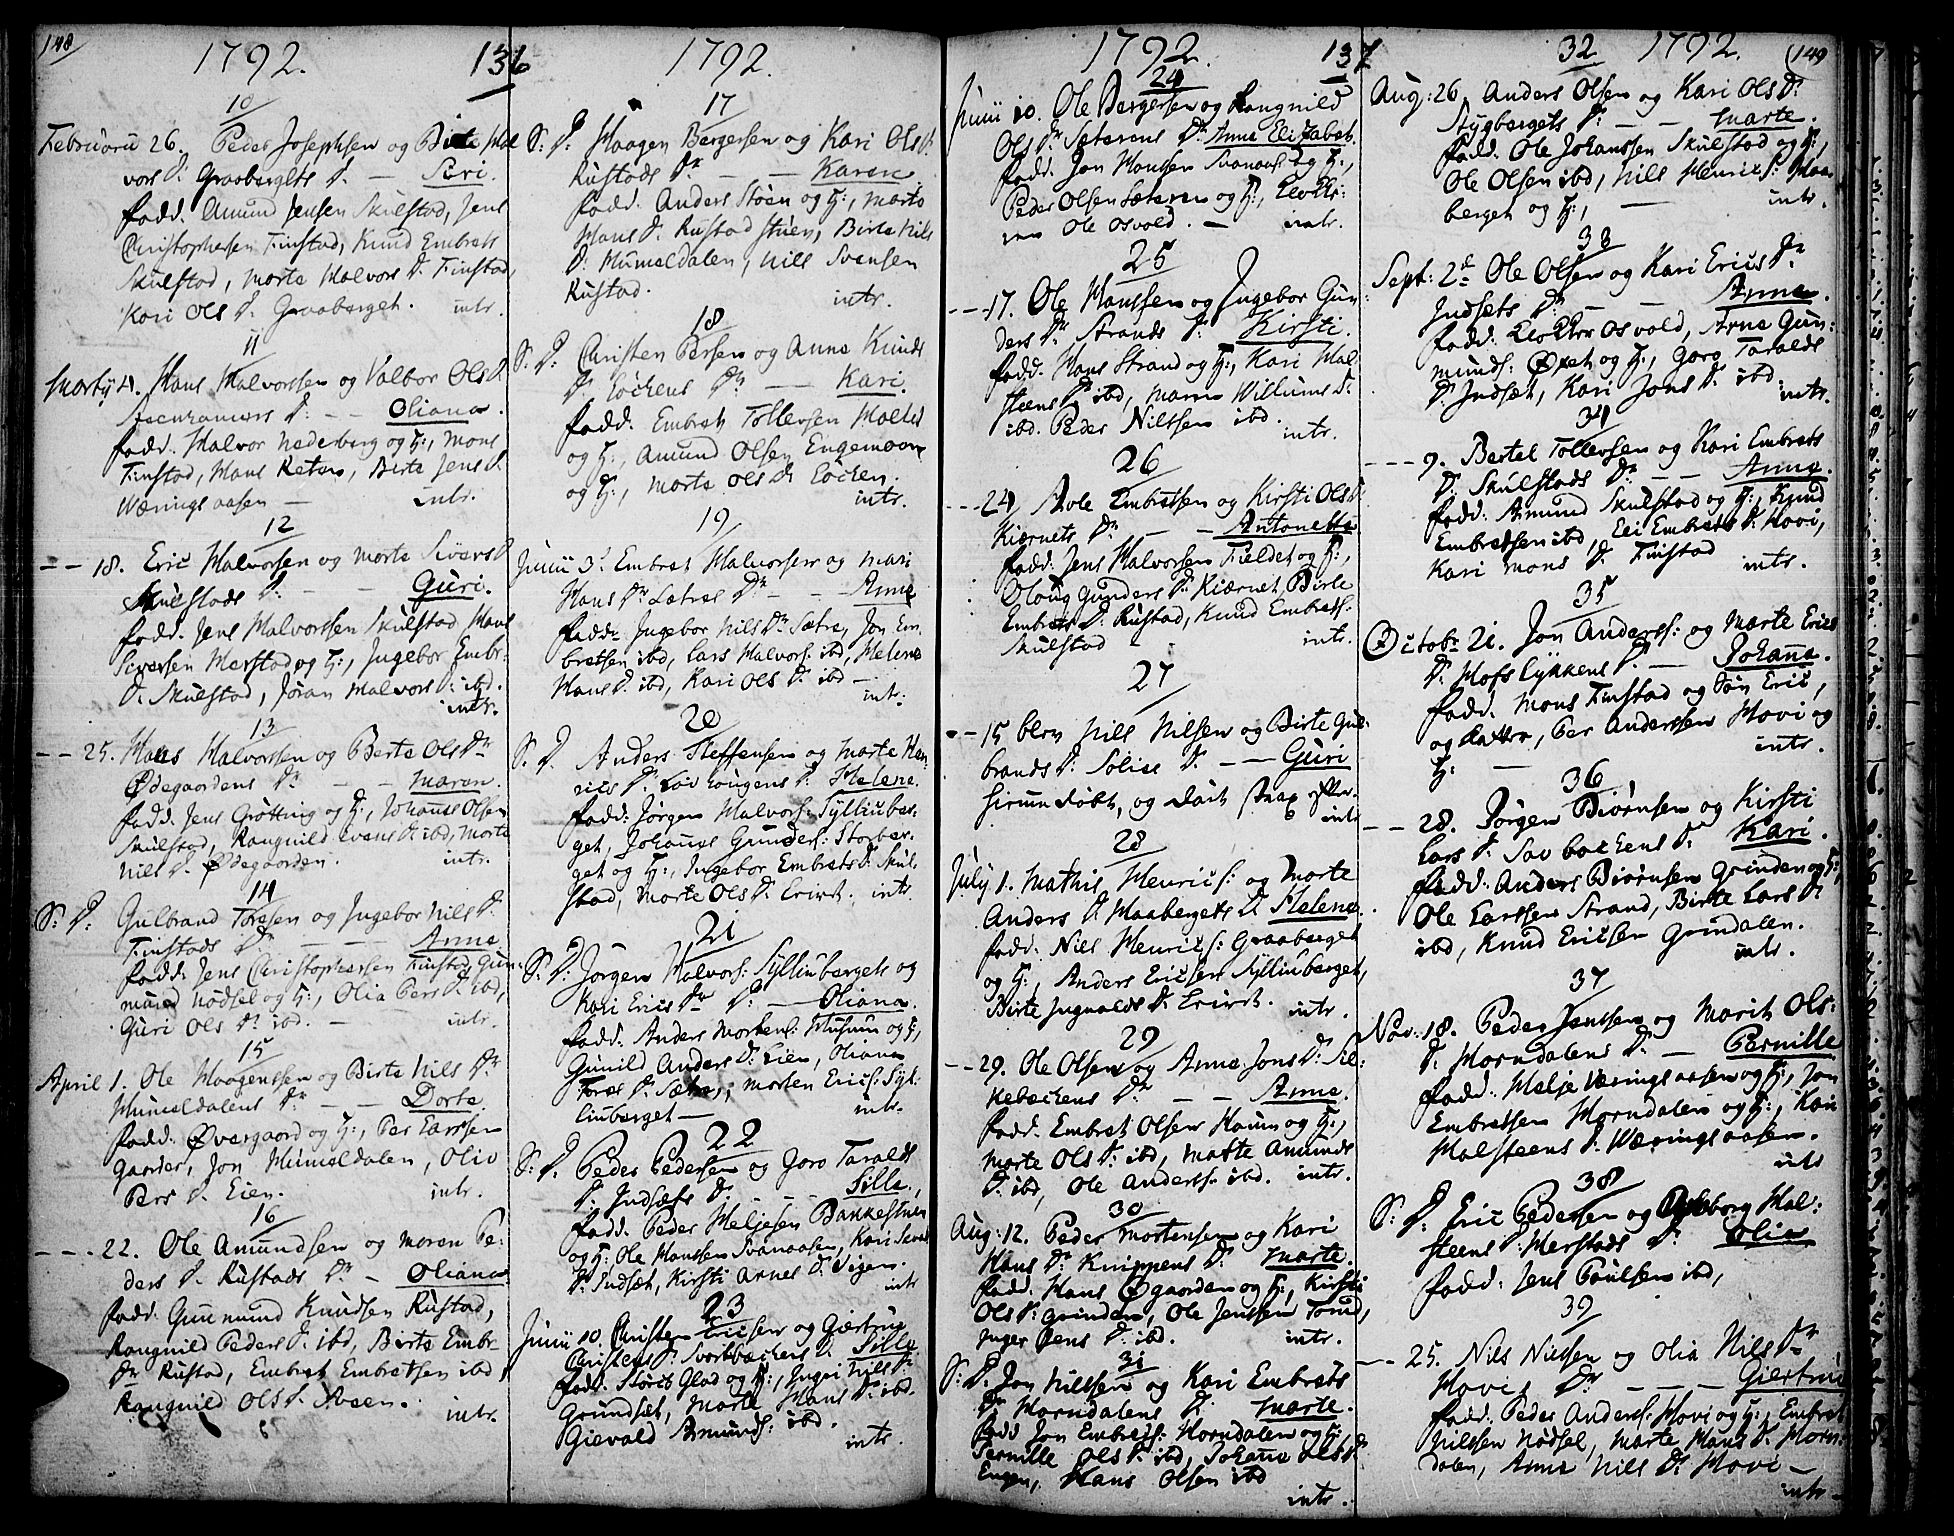 148
1792.
136
10
Februarii 26. Peder Josephsen og Birte Hal
vors D. Graabergets D. — Siri.
fadd. Amund Jensen Skulstad, Jens
Christophersen Finstad, Knud Embrets
Skulstad, Marte Halvors D. Finstad,
Kari Ols D. Graaberget. intr.
11
Martij 4. Hans Halvorssen og Valbor Ols D.
D: — Oliana.
fadd. Halvor Nederberg og H:, Mons
Finstad, Hans Reten, Birte Jens D.
Wæringsaasen — intr.
12
— 18. Eric Halvorssen og Morte Sivers D.
Skulstads D. — Guri.
fadd. Jens Halvorssen Skulstad, Hans
Siversen Merstad og H:, Ingebor Embr:
D. Skulstad, Jøran Halvors D. ibd.
intr.
13
— 25. Hans Halvorssen og Berte Ols Dr
Ødegaardens Dr — Maren.
fadd. Jens Grøtting og H:, Johanes Olsen
Skulstad, Rangnild Evens D. ibd, Morte
Nils D. Ødegaarden. intr.
14
S. D. Gulbrand Toresen og Ingebor Nils D.
Finstads Dr — Anne
fadd. Jens Christophersen Finstad, Gun:
mund Nødsel og H:, Olia Pers D. ibd,
Guri Ols D. ibd. — intr.
15
April 1. Ole Haagenssen og Birte Nils Dr
Humeldalens Dr — Dorte
fadd. Øvergaard og H:, Per Larssen
Gaarder, Jon Humeldalen, Olia
Pers D. Eien. intr.
16
— 22. Ole Amundsen og Maren Pe-
ders D. Rustads Dr — Oliana
fadd. Gunmund Knudsen Rustad,
Rangnild Peders D. ibd, Birte Embr-
Dr Rustad, Embret Embretsen ibd,
Rangnild Ols D. Aasen. intr.
1792.
17
S. D. Haagen Bergersen og Kari Ols D.
Rustads Dr — Karen
fadd. Anders Støen og H:, Morte
Hans D. Rustadstuen, Birte Nils
D. Humeldalen, Nils Svensen
Rustad. intr.
18
S. D. Christen Persen og Anne Knuds
D. Løckens Dr — Kari.
fadd. Embret Tollevsen
og H:, Amund Olsen Engemoen
og H:, Morte Ols D. Løcken.
intr.
19
Junii 3. Embret Halvorssen og Mari
Hans Dr Sætres Dr — Anne
fadd: Ingebor Nils Dr Sætre, Jon Em-
bretsen ibd, Lars Halvors: ibd, Helene
Hans D. ibd, Kari Ols D. ibd —
intr.
20
S. D. Anders Steffensen og Marte Hen
rics D. D. Helene
fadd: Jørgen Halvors: Sylliuber-
get, Johanes Gunders: Storber-
get og H:, Ingebor Embrets D. Skul-
stad, Morte Ols D. intr.
21
S. D. Jørgen Halvors: Sylliubergets og
Kari Erics Dr D. — Oliana.
fadd. Anders Mortens: og H,
Gunild Anders D. Eien, Oliana
Tores D. Sætre, Morten Erics: Syl-
liuberget — intr.
22
S. D. Peder Pedersen og Goro Taralds
D. Indsæts D. — Sille.
fadd. Peder Heljesen Bankestuen
og H: Ole Hanssen Svenaasen, Kari
D. Indsæt, Kirsti Arnes D.
intr
23
Junii 10. Christen Ericsen og Giertrug
Christens D. Svartbækens D. Sille
fadd. Glad og H:, Ingeri Nils D.
Grundset, Marte Hans D. ibd.
Gievald Amunds: ibd.
intr.
1792.
137
24
Junii 10. Ole Bergersen og Rangnild
Ols D. Sæterens D. Anne Elizabet.
fadd. Jon Hansen Svenaas og H:,
Peder Olsen Sæteren og H:,
Ole Osvold. — intr.
25
— 17. Ole Hanssen og Ingebor Gun
ders D. Strands D. Kirsti.
fadd. Hans Strand og H:, Kari Hal-
steens D. ibd, Maren Willums D.
ibd. Peder Nilssen ibd.
intr.
26
— 24 Aole Embretsen og Kirsti Ols D
Kiernets Dr — Antonette
fadd. Jens Halvorssen Fieldet og H:,
Oloug Gunders D. Kiernet, Birte
Embrets D. Rustad, Knud Embrets:
Skulstad — intr.
27
— 15 blev Nils Nilsen og Birte Gul-
brands D. Solies D. — Guri
hiemmedøbt, og døde strax efter.
intr
28
July 1. Mathis Henrics: og Morte
Anders D. Haabergets D. Helene.
fadd. Niels Henrics: Graaberget
og H:, Anders Ericsen Sylliuberget,
Birte Ingvalds D. intr.
29
— 29. Ole Olsen og Anne Jons D.
kebækens Dr — Anne.
fadd. Embret Olsen og H:,
Morte Ols D. ibd, Matte Amunds
D. ibd, Ole Anders: ibd. intr.
30
Aug: 12. Peder Mortensen og Kari
Hans Dr Knippens D. Marte.
fadd. Hans Øgaarden og H:, Kirsti
Ols D. Grinden, Ole Jenssen Torud,
Inger Jens D. ibd. intr.
31
S. D. Jon Nilssen og Kari Embrets
Dr Horndalens D. Marte.
fadd Jon Embrets: Horndalen og H:,
Pernille Ols D. ibd, Johanne Ols D
Engen, Hans Olsen ibd
intr.
32
1792.
149
Aug: 26 Anders Olsen og Kari Ols Dr
Stygbergets D: — Marte.
fadd. Ole Johanssen Skulstad og H:,
Ole Olsen ibd, Nils Henrics:
berget og H:, — intr.
33
Sept: 2d Ole Olsen og Kari Erics Dr
Indsets Dr — Anne.
fadd. Osvold, Arne Gun:
munds: Øxet og H:, Goro Taralds
D. Indsæt, Kari Jons D. ibd
intr.
34
— 9. Bertel Tollevsen og Kari Embrets
D. Skulstads Dr — Anne.
fadd. Amund Skulstad og H:, Knud
Embretsen ibd, Eli Embrets D. Hovi,
Kari Mons D. Finstad intr.
35
Octobr 21. Jon Anders: og Marte Erics
D. Hofslykkens D. — Johanne.
fadd. Mons Finstad og Søn Eric,
og Datter, Per Anderssen Hovi og
H: — intr.
36
— 28. Jørgen Biørnsen og Kirsti
Lars D. Savbækens D. Kari.
fadd. Anders Biørnsen Grinden og H:,
Ole Larssen Strand, Birte Lars D
ibd, Knud Ericsen Grindalen.
intr.
37
Nov: 18. Peder Jenssen og Marit Ols:
D. Horndalens D. — Pernille
fadd. Helje Wæringsaasen og H:, Jon
Embretsen Horndalen og H:, Kari
Halsteens D. Wæringsaasen.
intr
38
S. D. Eric Pedersen og Ingeborg Hal:
steens D. Merstads D. Olia
fadd. Jens Poulsen ibd,
39
— 25. Nils Nilssen og Olia Nils Dr
Hovi, Dr — Giertrui
fadd. Peder Anders: Hovi og H:, Embret
Nilssen Nødsel, Marte Hans D. Horn
dalen, Anne Nils D. Hovi —
intr —